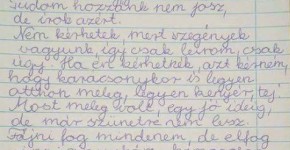 Tudom hozzánk nem jösz,
de irok azért.
Nem kérhetek, mert szegények
vagyunk, így csak leirom, csak
úgy. Ha én kérhetnék, azt kérném,
hogy karácsonykor is legyen
otthon meleg, legyen kenyér, tej.
Most meleg volt, egy jó ideig,
de már szünetre nem lesz.
Fájni fog mindenem, de elfog